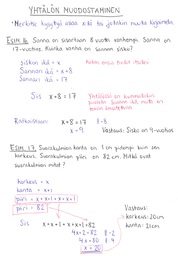 YHTÄLÖN MUODOSTAMINEN
• Merkitse kysyttyä asiaa x:llä tai jollakin muulla kirjaimella
ESIM 16 Sanna on siskoaan 8 vuotta vanhempi. Sanna on
17-vuotias. Kuinka vanha on Sannan sisko?
Siskon ikä = x
Sannan ikä = x+8
Sannan ikä = 17
Siis x + 8 = 17
Yhtälössä on
Ratkaistaan: x+8 = 17 |-8
x = 9
Vastaus: Sisko on 9-vuotias
ESIM 17 Suorakulmion kanta on 1 cm pidempi kuin sen
korkeus. Suorakulmion piiri on 82 cm. Mitkä ovat
suorakulmion mitat?
korkeus = x
kanta = x+1
piiri = x+x+1+x+x+1
piiri = 82
Siis x+x+1+x+x+1=82
4x+2=82 |-2
4x=80 |:4
x = 20
Vastaus:
korkeus: 20cm
kanta: 21cm